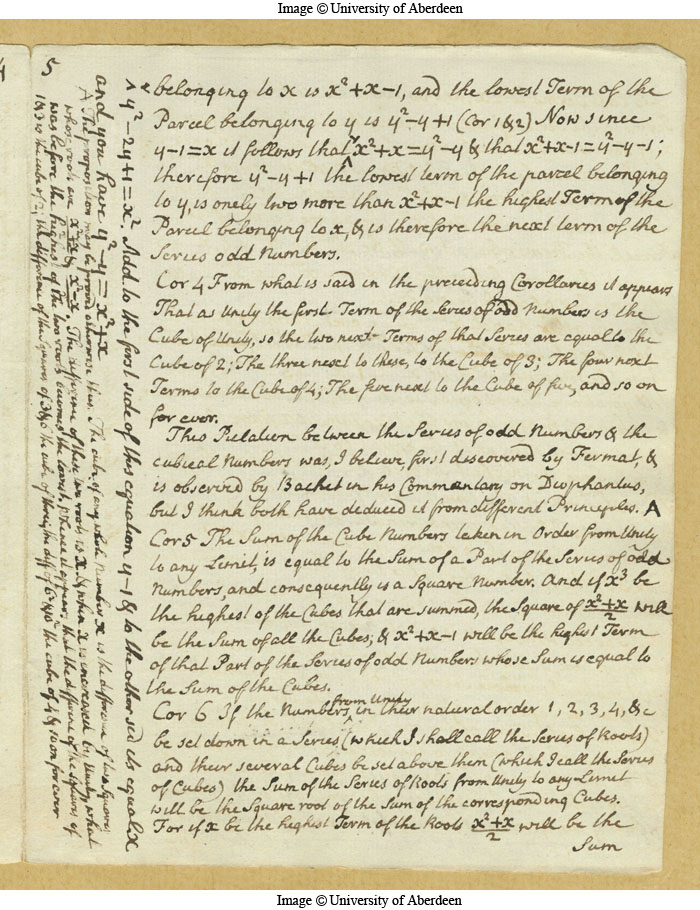 Image © University of Aberdeen
4
5
belonging to x is x²+x-1, and the lowest Term of the
Parcel belonging to y is y²-y+1 (Cor 1 & 2) Now since
y-1=x it follows that ^ x²+x=y²-y & that x²+x-1=y²-y-1;
therefore y²-y+1 the lowest term of the parcel belonging
to y, is onely two more than x²+x-1 the highest Term of the
Parcel belonging to x, & is therefore the next term of the
Series odd Numbers.
Cor 4 From what is said in the preceeding Corollaries it appears
That as Unity the first Term of the Series of odd Numbers is the
Cube of Unity, so the two next Terms of that Series are equal to the
Cube of 2; The three next to these, to the Cube of 3; The four next
Terms to the Cube of 4; The five next to the Cube of five, and so on
for ever.
This Relation between the Series of odd Numbers & the
cubical Numbers was, I believe, first discovered by Fermat, &
is observed by Bachet in his Commentary on Diophantus,
but I think both have deduced it from different Principles. A
Cor 5 The Sum of the Cube Numbers taken in Order from Unity
to any Limit, is equal to the Sum of a Part of the Series of odd
Numbers, and consequently is a Square Number. And if x³ be
the highest of the Cubes that are summed, the Square of x²+x/2 will
be the Sum of all the Cubes; & x²+x-1 will be the highest Term
of that Part of the Series of odd Numbers whose Sum is equal to
the Sum of the Cubes.
Cor 6 If the Numbers ^from Unity in their natural order 1, 2, 3, 4, &c
be set down in a Series (which I shall call the Series of Roots)
and their several Cubes be set above them (which I call the Series
of Cubes) the Sum of the Series of Roots from Unity to any Limit
will be the Square root of the Sum of the corresponding Cubes.
For if x be the highest Term of the Roots x²+x/2 will be the
Sum
^ y²-2y+1=x². Add to the first side of this equation y-1 & to the other side its equal x
and you have y²-y=x²+x
A The proposition may be proved otherwise thus. The cube of any whole Number x is the difference of two Squares
whose roots are x²+x/2 & x²-x/2. The difference of these two roots is x & when x is increased by Unity, what
was before the highest of the two roots becomes the lowest, whence it appears that the difference of the squares of
1 & 3 is the cube of 2, the difference of the Squares of 3 & 6 the cube of three, the diff. of 6 & 10 the cube of 4 & so on for ever
Image © University of Aberdeen